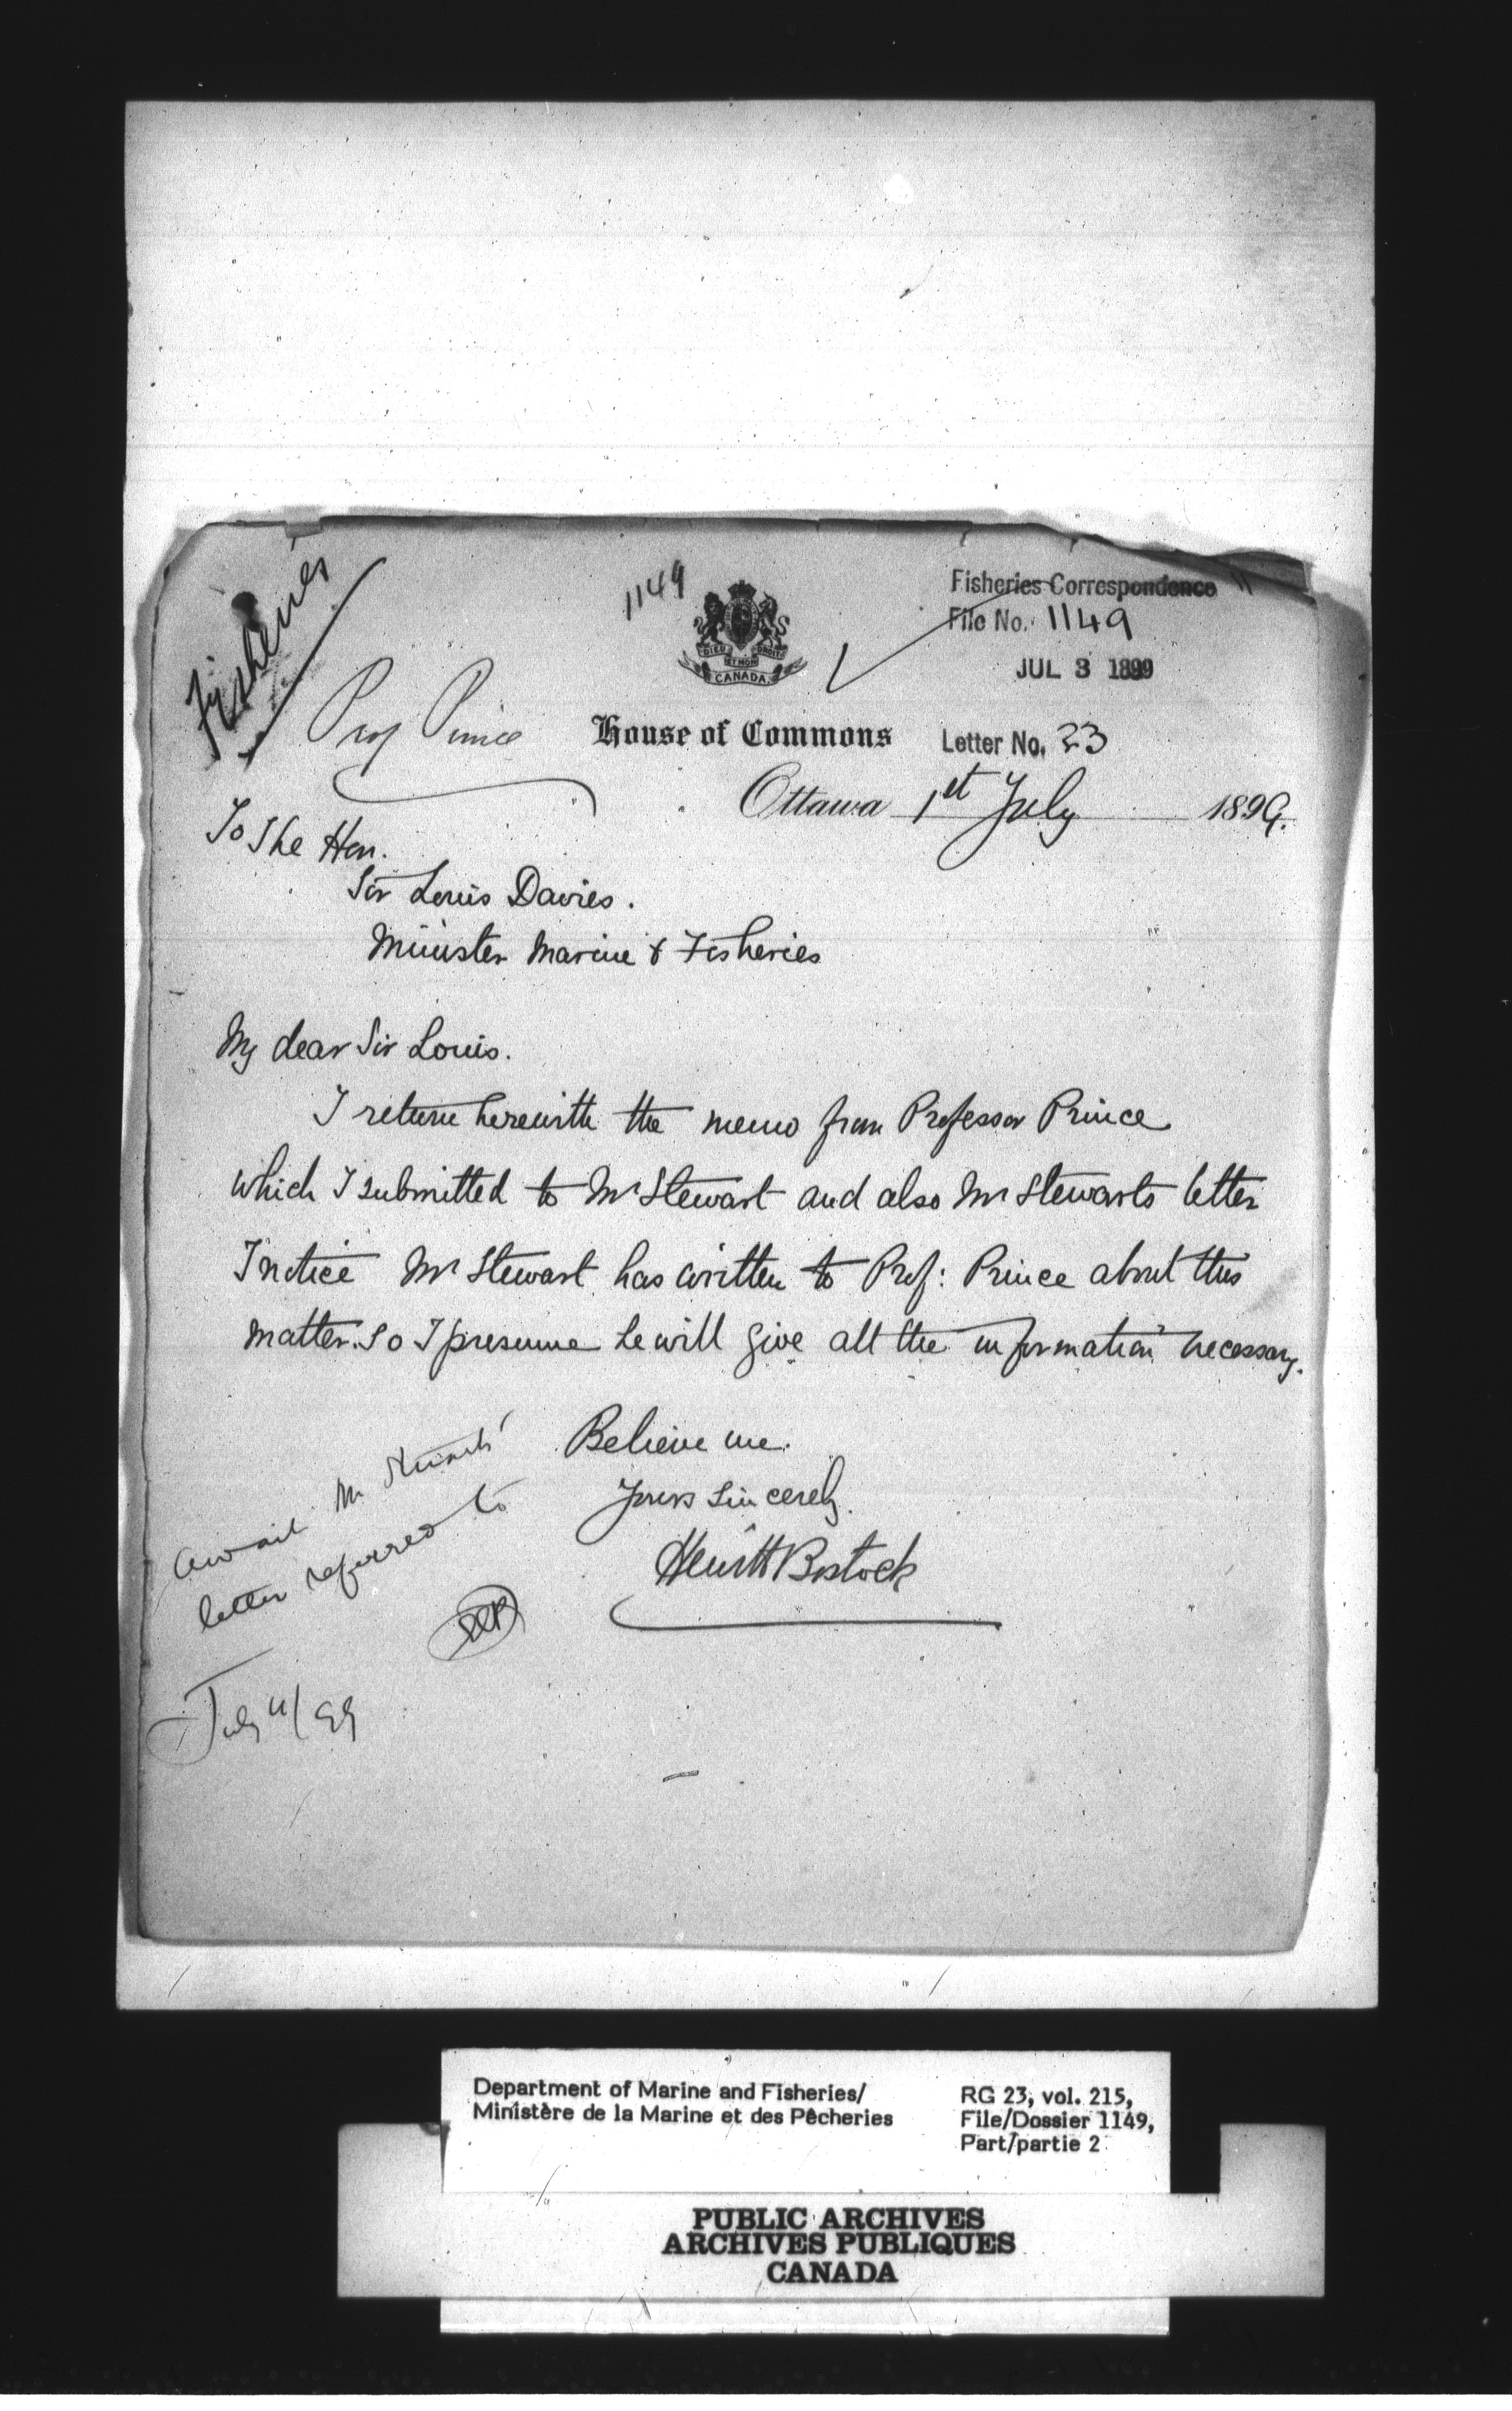 Fisheries
1149
Fisheries Correspondence
File No. 1149
JUL 3 1899
DIEU ET MON DROIT
CANADA
Prof Prince
House of Commons
Letter No. 23
Ottawa 1st July 1899.
To The Hon.
Sir Louis Davies.
Minister Marine & Fisheries
My dear Sir Louis.
I return herewith the memo from Professor Prince
which I submitted to Mr Stewart and also Mr Stewarts letter
I notice Mr Stewart has written to Prof: Prince about this
matter. So I presume he will give all the information necessary.
Believe me.
Yours sincerely.
Hewitt Bostock
await Mr Stewarts'
letter referred to
July 4/99
Department of Marine and Fisheries/
Ministère de la Marine et des Pêcheries
RG 23, vol. 215,
File/Dossier 1149,
Part/partie 2
PUBLIC ARCHIVES
ARCHIVES PUBLIQUES
CANADA